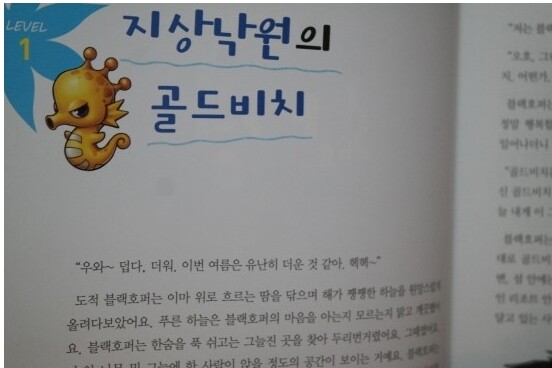 LEVEL
1
지상낙원의
골드비치
"우와~ 덥다, 더워. 이번 여름은 유난히 더운 것 같아. 헥헥~"
도적 블랙호퍼는 이마 위로 흐르는 땀을 닦으며 해가 쨍쨍한 하늘을 원망스럽게
올려다보았어요. 푸른 하늘은 블랙호퍼의 마음을 아는지 모르는지 맑고 깨끗했어
요. 블랙호퍼는 한숨을 푹 쉬고는 그늘진 곳을 찾아 두리번거렸어요. 그때였어요.
나무 밑 그늘에 한 사람이 앉을 정도의 공간이 보이는 거예요. 블랙호퍼는
"저는 블랙
"오호, 그
지, 어떤가,
블랙호퍼는
정말 행복할
일어나더니
"골드비치는
신 골드비치
늘 내게 이 그
블랙호퍼는
대로 골드비
면, 섬 안에는
인 리조트 안
알고 있는 사